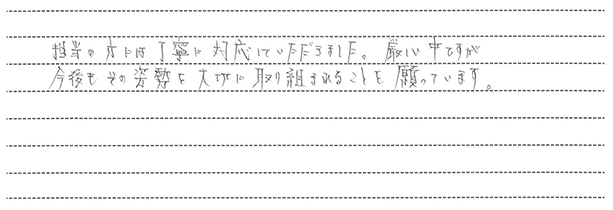 担当の方には丁寧に対応していただきました。厳しい中ですが
今後もその姿勢を大切に取り組まれることを願っています。